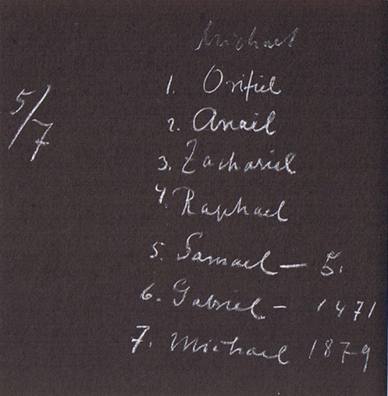 Michael
5/7
1. Orifiel
2. Anael
3. Zachariel
4. Raphael
5. Samael — 5.
6. Gabriel — 1471
7. Michael 1879